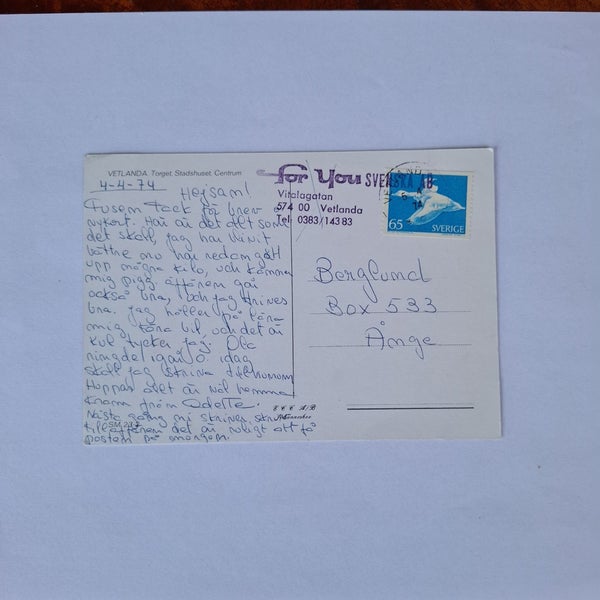 VETLANDA. Torget, Stadshuset, Centrum
4-4-74
Hejsan!
Tusen Tack för brev
nykert. Här är det det som
det skall, jag har blivit
bättre nu har redan gått
upp några kilo, och känner
mig pigg affären går
också bra, och jag trives
bra. jag håller på lära
mig köra bil, och det är
kul tycker jag. Ola
ringde igår o. idag
skall jag skriva till
Hoppas allt är väl hemma
Kram från Odette.
Nästa gång ni skriver skriv
till affären det är roligt att få
posten på morgon.
for You SVENSKA AB
Vitalagatan
574 00 Vetlanda
Tel. 0383/143 83
65 SVERIGE
Berglund
Box 533
Ånge